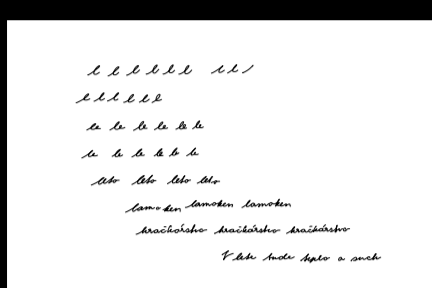 l l l l l l l l l
l l l l l l
le le le le le le
le le le le le le
leto leto leto leto
lamoken lamoken lamoken
hračkárstvo hračkárstvo hračkárstvo
V lete bude teplo a such